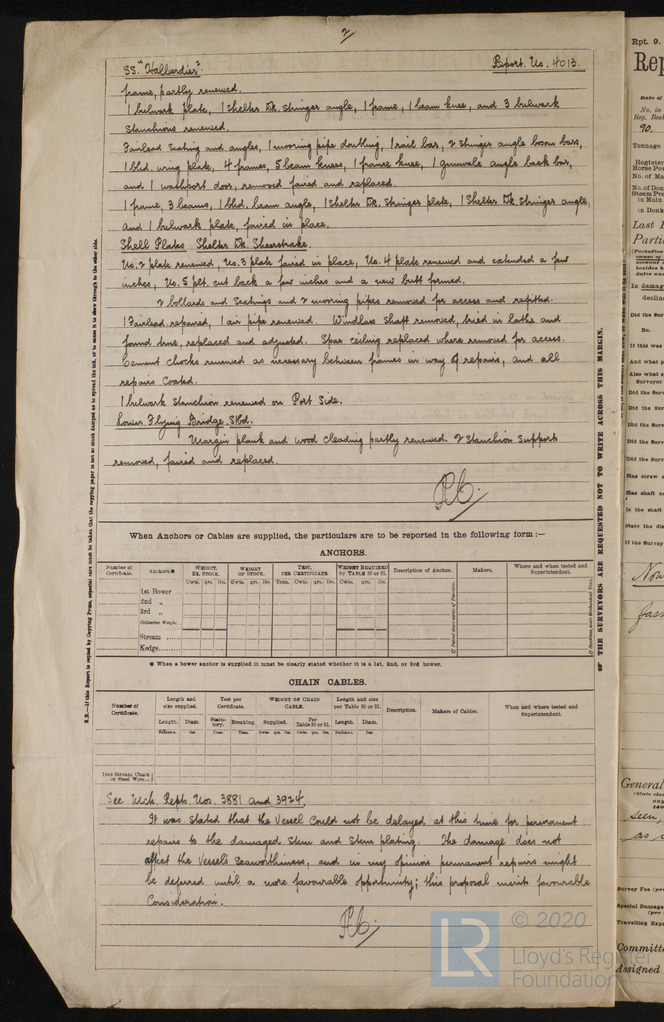 2/
SS. "Halberdier". Report. No. 4013.
frame, partly renewed.
1 bulwark plate, 1 Shelter Dk. Stringer angle, 1 frame, 1 beam knee, and 3 bulwark
Stanchions renewed.
Fairlead Seating and angles, 1 mooring pipe doubling, 1 rail bar, 2 Stringer angle bosom bars,
1 bhd. wing plate, 4 frames, 5 beam knees, 1 frame knee, 1 gunwale angle back bar,
and 1 washport door, removed faired and replaced.
1 frame, 3 beams, 1 bhd. beam angle, 1 Shelter Dk. Stringer plate, 1 Shelter Dk. Stringer angle,
and 1 bulwark plate, faired in place.
Shell Plates. Shelter Dk. Sheerstrake.
No. 2 plate renewed, No. 3 plate faired in place, No. 4 plate renewed and extended a few
inches, No. 5 plt. cut back a few inches and a new butt formed.
2 bollards and Seatings and 2 mooring pipes removed for access and refitted.
1 Fairlead repaired, 1 air pipe renewed. Windlass Shaft removed, tried in lathe and
found true, replaced and adjusted. Spar Ceiling replaced where removed for access.
Cement Chocks renewed as necessary between frames in way of repairs, and all
repairs Coated.
1 bulwark Stanchion renewed on Port Side.
Lower Flying Bridge. Stbd.
Margin plank and wood cleading partly renewed. 2 Stanchion Support
removed, faired and replaced.
When Anchors or Cables are supplied, the particulars are to be reported in the following form :—
ANCHORS.
Number of Certificate. Anchors* WEIGHT, EX. STOCK. WEIGHT OF STOCK. TEST, PER CERTIFICATE. WEIGHT REQUIRED by TABLE 30 or 31. Description of Anchor. Makers. Where and when tested and Superintendent.
Cwts. qrs. lbs. Cwts. qrs. lbs. Tons. Cwts. qrs. lbs. Cwts. qrs. lbs.
1st Bower
2nd „
3rd „
Collective Weight
Stream ......
Kedge........
* When a bower anchor is supplied it must be clearly stated whether it is a 1st, 2nd, or 3rd bower.
CHAIN CABLES.
Number of Certificate. Length and size supplied. Test per Certificate. WEIGHT OF CHAIN CABLE. Length and size per Table 30 or 31. Description. Makers of Cables. When and where tested and Superintendent.
Length. Diam. Statutory. Breaking. Supplied. Per Table 30 or 31. Length. Diam.
Fathoms. Ins. Tons. Tons. Cwts. qrs. lbs. Cwts. qrs. lbs. Fathoms. Ins.
Iron Stream Chain or Steel Wire
See Mch. Repts. Nos. 3881 and 3924.
It was stated that the Vessel Could not be delayed at this time for permanent
repairs to the damaged Stem and Stem plating. The damage does not
affect the Vessel's Seaworthiness, and in my opinion permanent repairs might
be deferred until a more favourable opportunity; this proposal merits favourable
Consideration.
THE SURVEYORS ARE REQUESTED NOT TO WRITE ACROSS THIS MARGIN.
Rpt. 9.
Rep
Date of
No. in
Reg. Book
90.
Tonnage
Register
Horse Pow
No. of Ma
No. of Don
Steam Pre
in Main
in Donk
Last
Parti
In damag
Did the Sur
Do.
If this was
And what p
Also what
Surveyor
Did the Surv
Did the Surv
Did the Surv
Did the Surv
Has screw
Has shaft
Is the shaft
State the di
If the Survey
Now
General
seen,
as
Survey Fee (per
Special Damage
Travelling Expe
Committ
Assigned
LR
© 2020
Lloyd's Register
Foundation